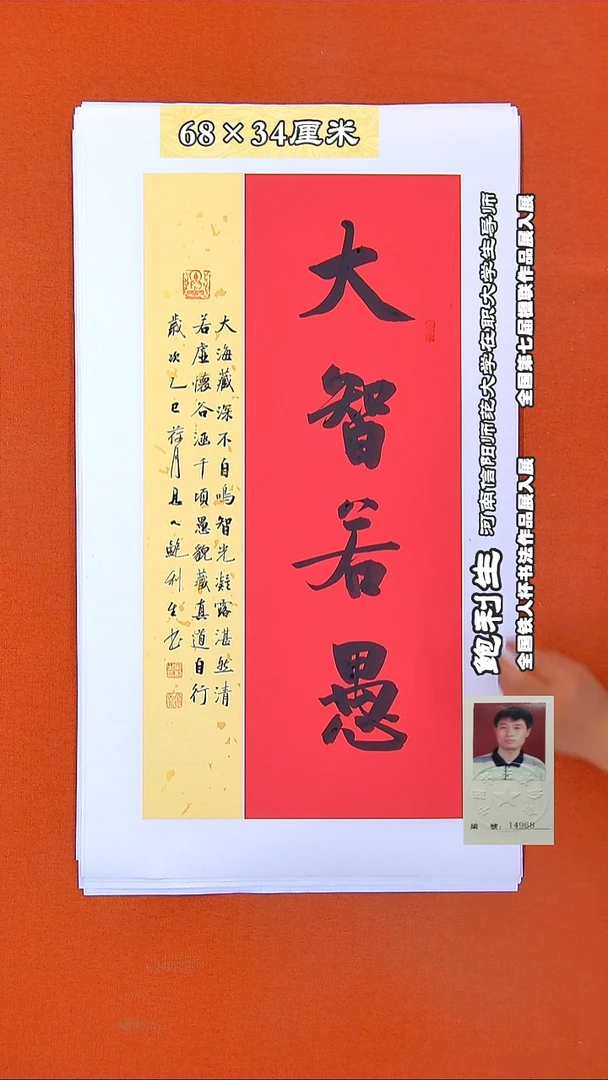 68×34厘米
大智若愚
大海藏深不自鸣智光凝露湛然清
若虚懷谷涵千頃愚貌藏真道自行
歲次乙巳荷月
鲍利生书
鲍利生 河南信阳师范大学在职大学生导师
全国第七届楹联作品展入展
全国铁人杯书法作品展入展
编 號: 14968